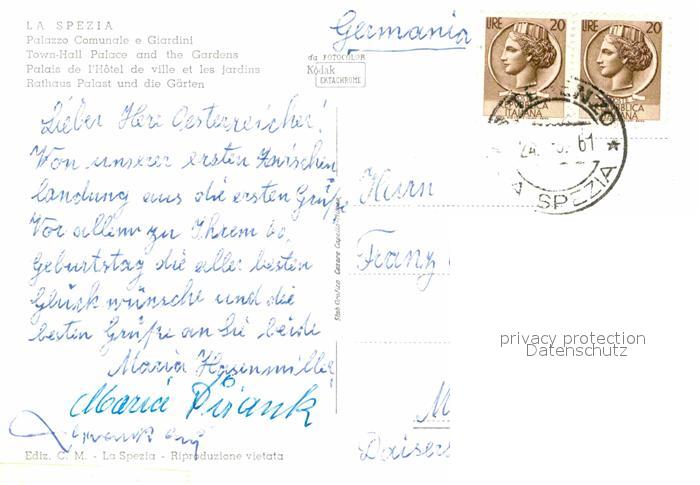 LA SPEZIA
Palazzo Comunale e Giardini
Town-Hall Palace and the Gardens
Palais de l'Hôtel de ville et les jardins
Rathaus Palast und die Gärten
Germania
da FOTOCOLOR
Kodak
EKTACHROME
LIRE 20
LIRE 20
ITALIANA
LA SPEZIA
Lieber Herr Oesterreicher!
Von unserer ersten Zwischen
landung aus die ersten Grüße
Vor allem zu Ihrem 60.
Geburtstag die aller besten
Glückwünsche und die
besten Grüße an Sie beide
Maria Hasenmiller
Maria
Herrn
Franz
privacy protection
Datenschutz
M
Ediz. C. M. - La Spezia - Riproduzione vietata